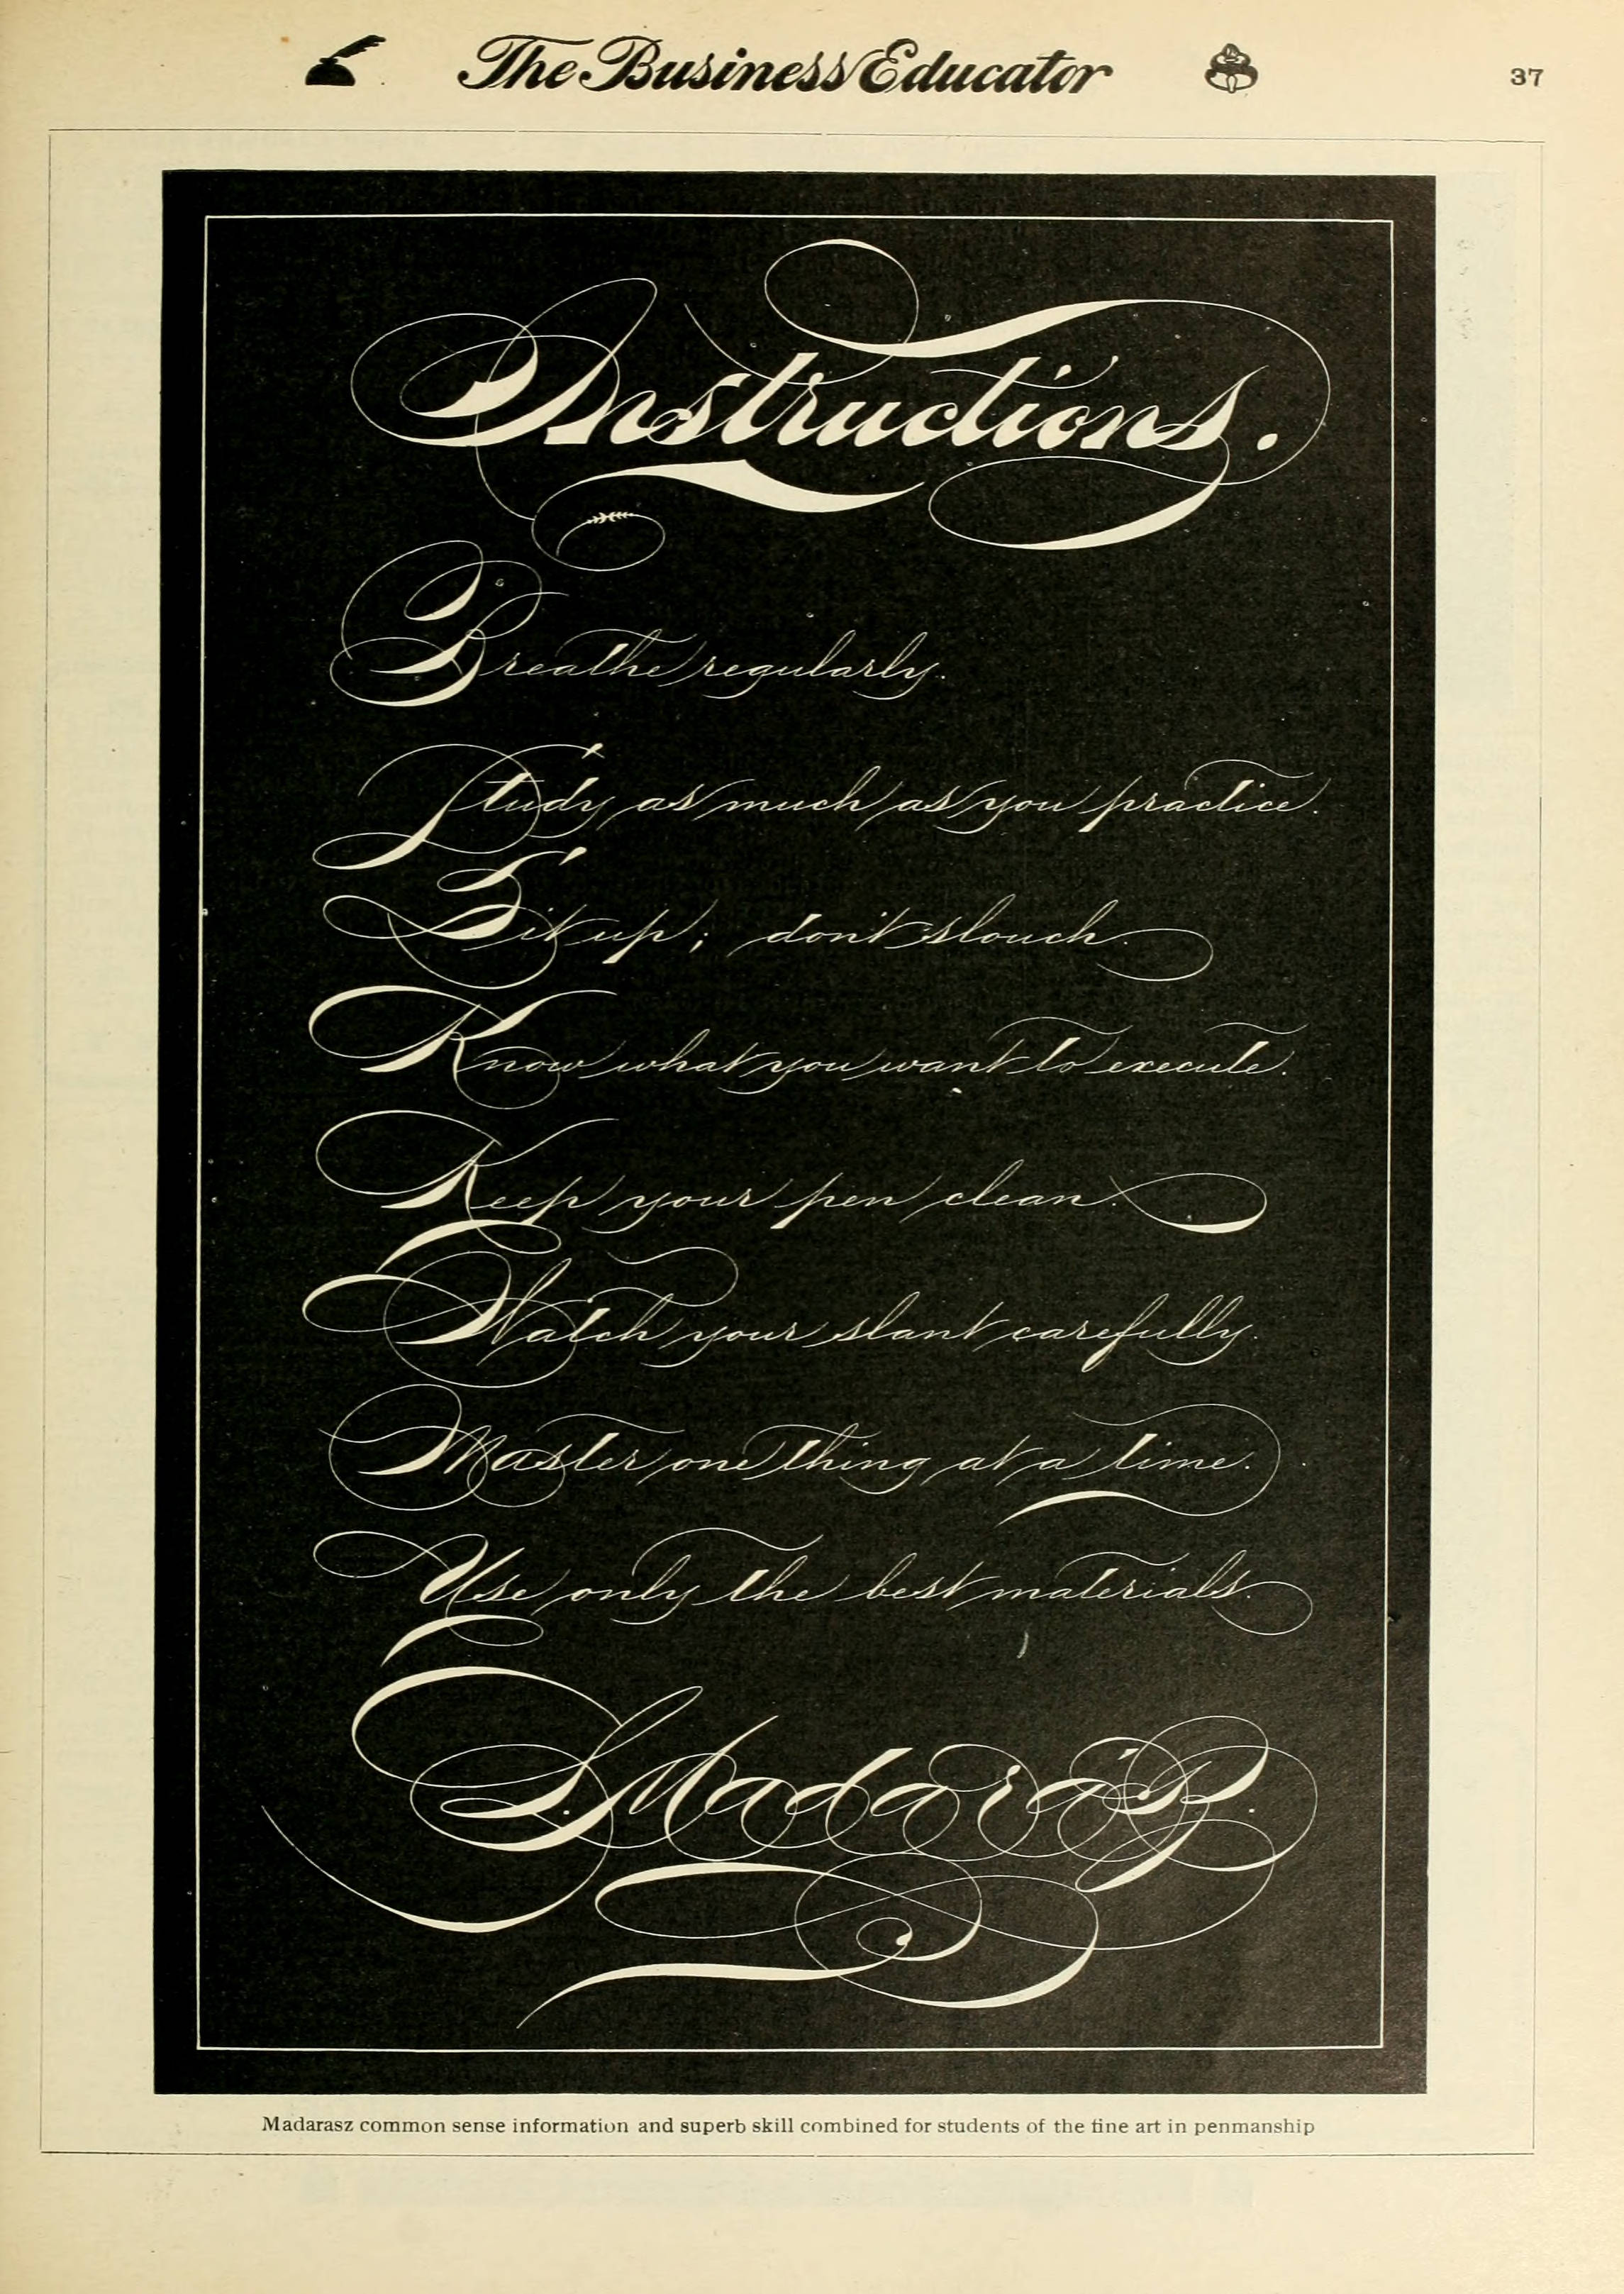 The Business Educator
37
Instructions.
Breathe regularly.
Study as much as you practice.
Sit up; don't slouch.
Know what you want to execute.
Keep your pen clean.
Watch your slant carefully.
Master one thing at a time.
Use only the best materials.
L. Madarasz.
Madarasz common sense information and superb skill combined for students of the fine art in penmanship